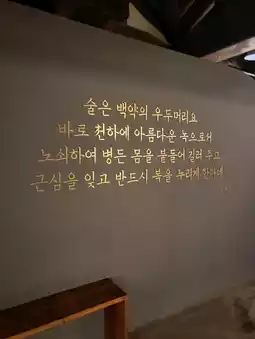 술은 백약의 우두머리요
바로 천하에 아름다운 녹으로서
노쇠하여 병든 몸을 붙들어 길러 주고
근심을 잊고 반드시 복을 누리게